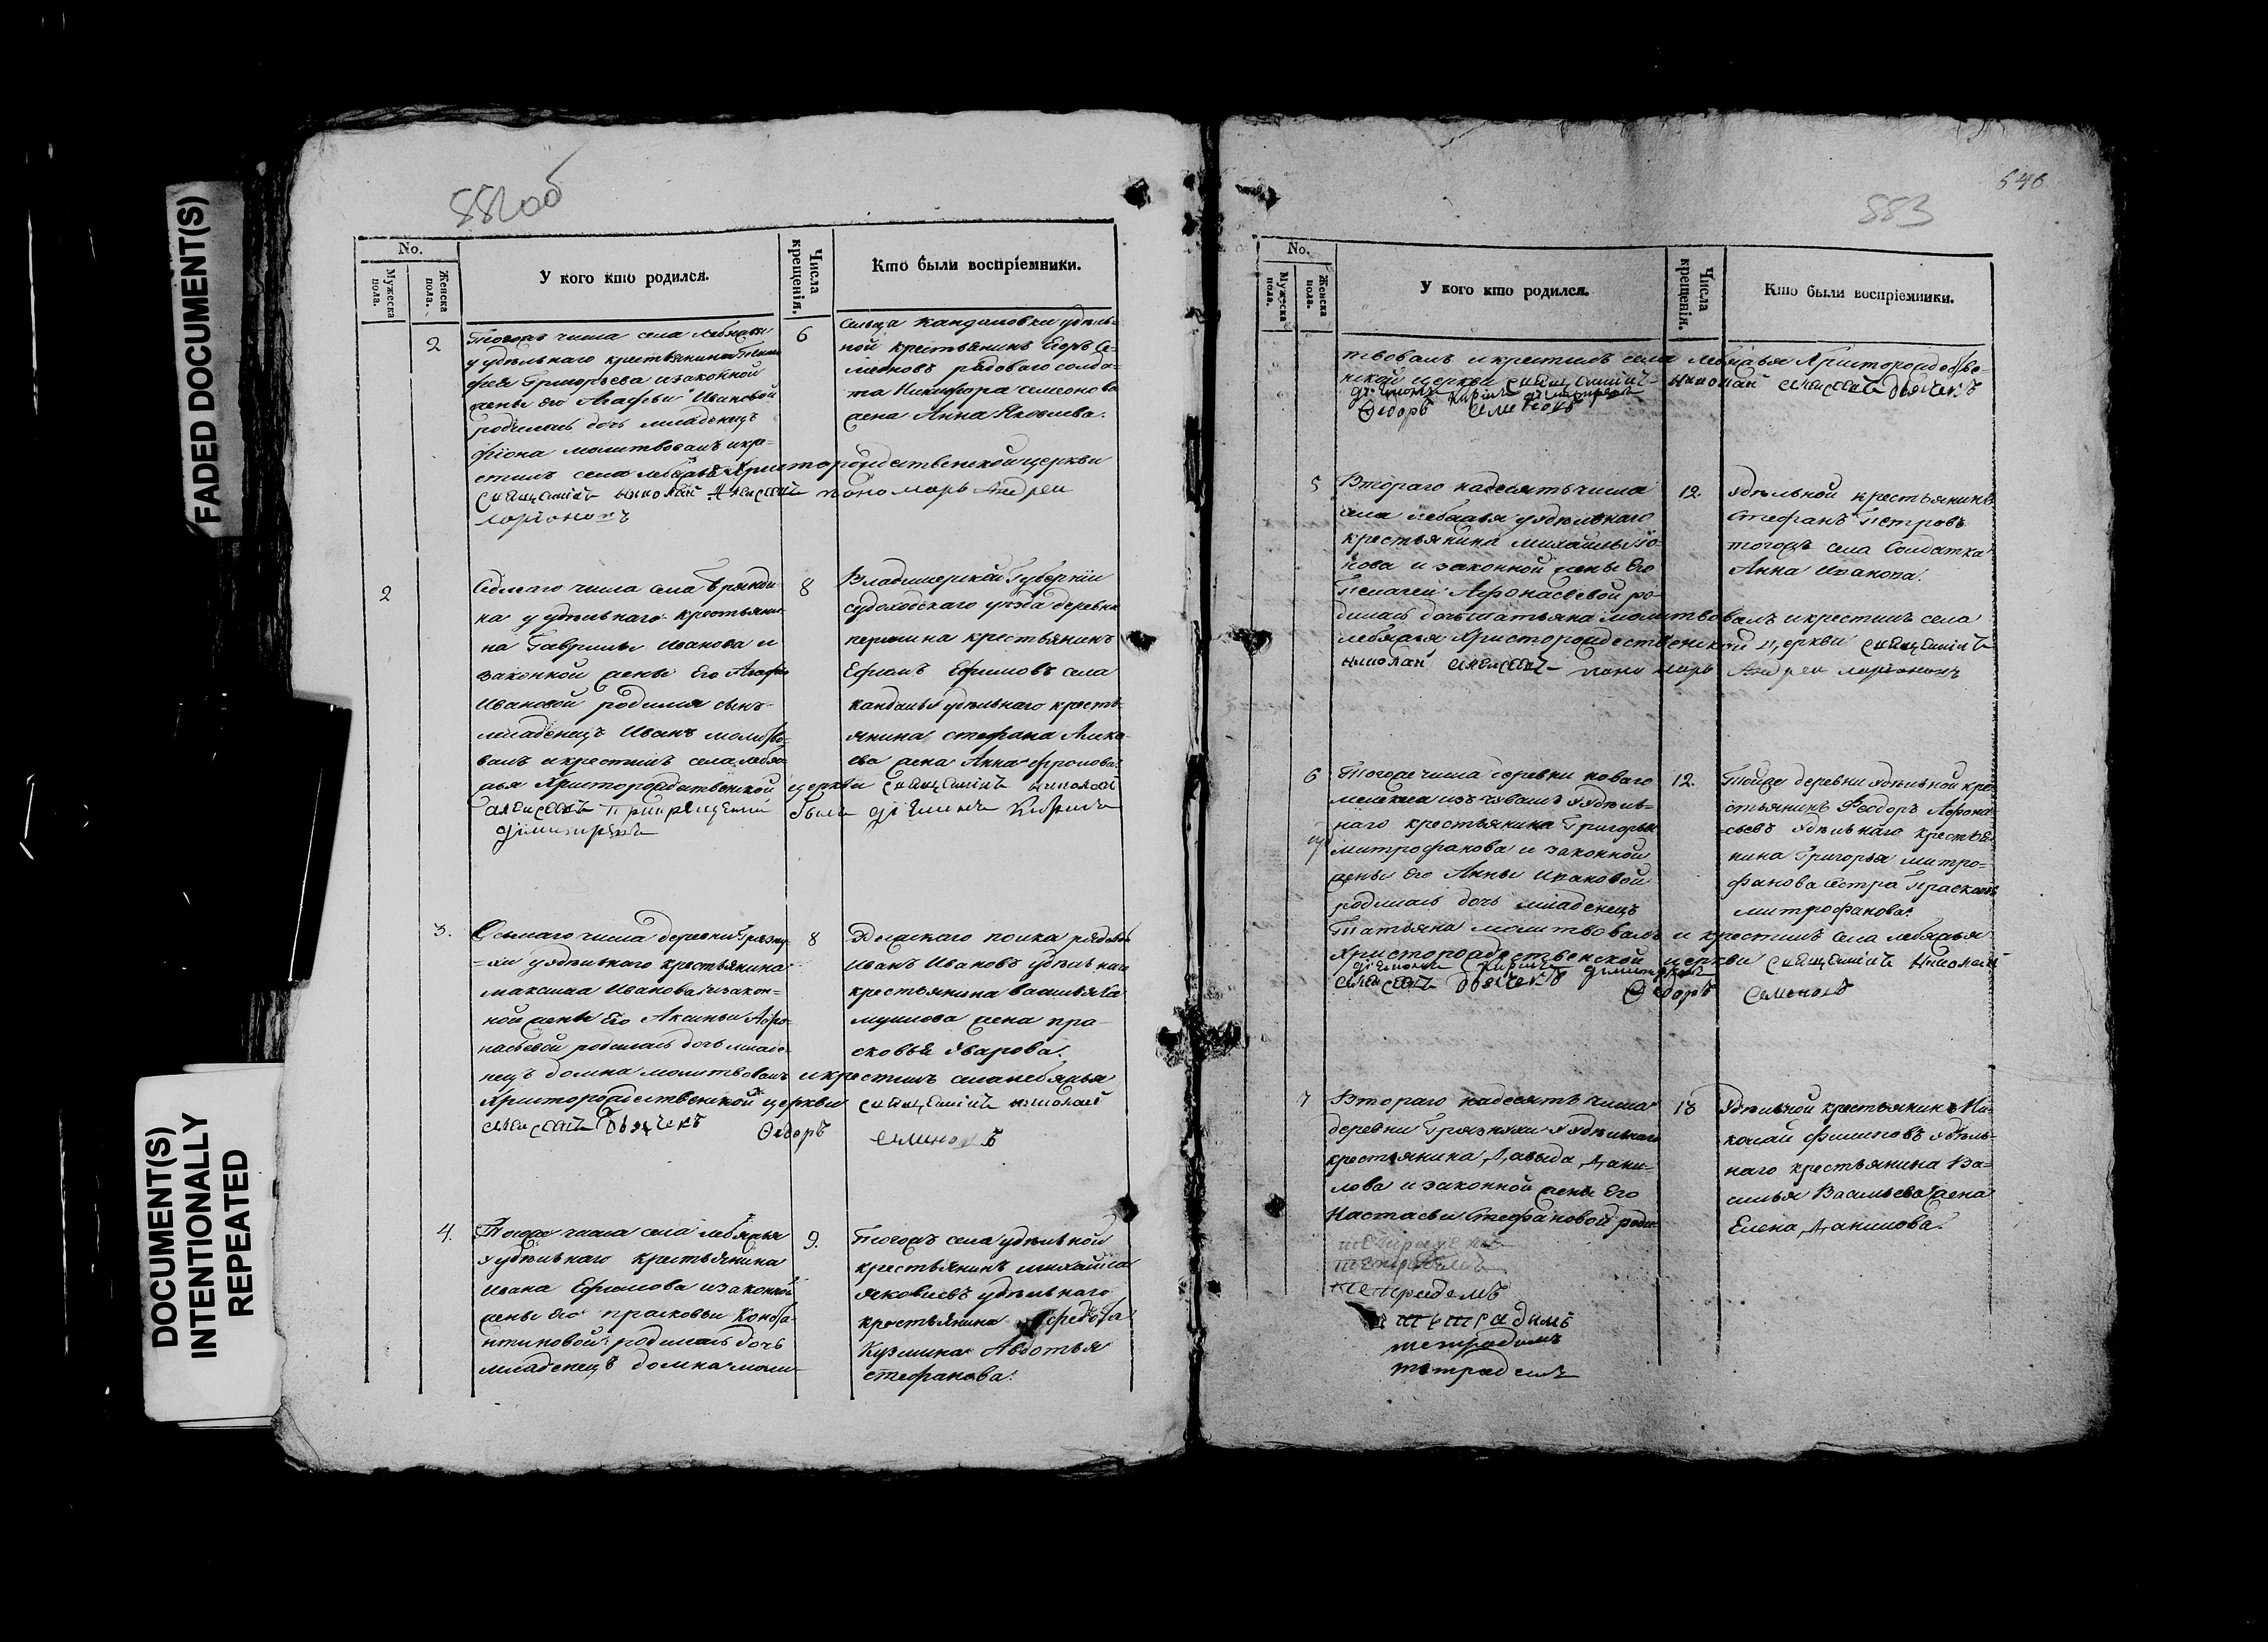 FADED DOCUMENT(S)
DOCUMENT(S)
INTENTIONALLY
REPEATED
882об
No.
Мужеска пола.
Женска пола.
У кого кто родился.
Числа крещенія.
Кто были воспріемники.
2
Тогожъ числа села лебяжья
у удѣльнаго крестьянина
Григорьева изаконной
жены его Агафьи Ивановой
родилась дочь младенецъ
фіона молитвовалъ икре-
стилъ села лебяжья Христорождественской церкви
священникъ николай алексеевъ пономарь Андреи
ларіоновъ
6
ной крестьянинъ Егоръ Се-
меновъ рядоваго солда-
та Никифора Семенова
жена Анна Яковлева.
2
Седмаго числа села бряндина
на у удѣльнаго крестьяни-
на Гаврилы Иванова и
законной жены Его Агафьи
Ивановой родился сынъ
младенецъ Иванъ молитво-
валъ икрестилъ села лебя-
жья Христорождественской церкви священникъ николай
алексеевъ При крещеніи были діаконъ Кирилъ
димитріевъ
8
Владимерской Губерніи
судоходскаго уѣзда деревни
крестьянинъ
Ефимъ Ефимовъ села
кандалы удѣльнаго кресть-
янина стефана Алек-
ева жена Анна фролова.
3.
Осьмаго числа деревни Грязну-
хи у удѣльнаго крестьянина
максима Иванова изакон-
ной жены Его Аксиньи Афо-
насьевой родилась дочь младе-
нецъ домна молитвовалъ икрестилъ села лебяжья
Христорождественской церкви священникъ николай
алексеевъ дьячекъ Ѳедоръ семеновъ
8
полка рядовой
Иванъ Ивановъ удѣльнаго
крестьянина васильи Са
муилова жена пра-
сковья Уварова.
4.
Тогоже числа села лебяжья
у удѣльнаго крестьянина
Ивана Ефимова изаконной
жены Его прасковьи Конста-
нтиновой родилась дочь
младенецъ домна моли-
9.
Тогожъ села удѣльной
крестьянинъ михайла
яковлевъ удѣльнаго
крестьянина федота
Кузмина Авдотья
стефанова.
646
883
No.
Мужеска пола.
Женска пола.
У кого кто родился.
Числа крещенія.
Кто были воспріемники.
твовалъ икрестилъ села лебяжья Христорождестве-
нской церкви священникъ николай алексеевъ дьячекъ
діаконъ Кирилъ димитріевъ
Ѳедоръ Семеновъ
5
Втораго надесять числа
села лебяжья у удѣльнаго
крестьянина михайлы
и законной жены Его
Пелагеи Афонасьевой ро-
дилась дочь татьяна молитвовалъ икрестилъ села
лебяжья Христорождественской церкви священникъ
николай алексеевъ пономарь Андреи ларіоновъ
12.
Удѣльной крестьянинъ
Стефанъ Петровъ
тогожъ села Солдатка
Анна Иванова.
6
Тогоже числа деревни новаго
изъ чувашъ у удѣль-
наго крестьянина Григорья
митрофанова и законной
жены Его Анны Ивановой
родилась дочь младенецъ
Татьяна молитвовалъ и крестилъ села лебяжья
Христорождественской церкви священникъ николай
діаконъ Кирилъ димитріевъ
алексеевъ дьячекъ Ѳедоръ Семеновъ
12.
Тойже деревни удѣльной кре-
стьянинъ Феодоръ Афона-
сьевъ удѣльнаго крестья-
нина Григорья митро-
фанова сестра Прасковья
митрофанова.
7
Втораго надесять числа
деревни Грязнухи у удѣльнаго
крестьянина Давыда Дани-
лова и законной жены Его
Настасьи Стефановой роди-
13
Удѣльной крестьянинъ Ни-
колай филиповъ удѣль-
наго крестьянина Ва-
силья Васильева жена
Елена Данилова.